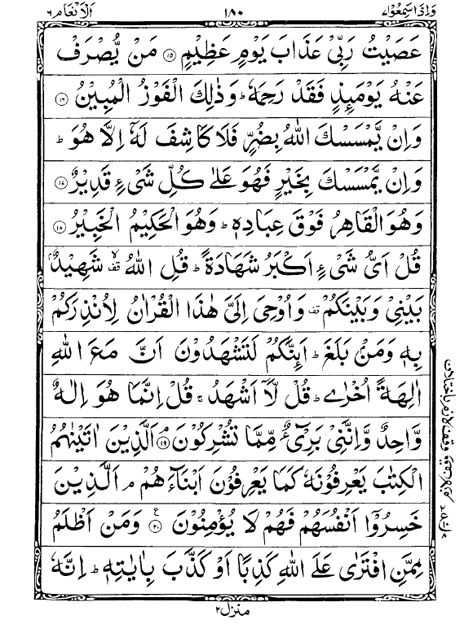 وَاِذَا سَمِعُوْا ۷ ۱۸۰ اَلْاَنْعَام ۶
عَصَیْتُ رَبِّیْ عَذَابَ یَوْمٍ عَظِیْمٍ ۝۱۵ مَنْ یُّصْرَفْ
عَنْهُ یَوْمَىِٕذٍ فَقَدْ رَحِمَهٗ ؕ وَذٰلِكَ الْفَوْزُ الْمُبِیْنُ ۝۱۶
وَاِنْ یَّمْسَسْكَ اللّٰهُ بِضُرٍّ فَلَا كَاشِفَ لَهٗۤ اِلَّا هُوَ ؕ
وَاِنْ یَّمْسَسْكَ بِخَیْرٍ فَهُوَ عَلٰى كُلِّ شَیْءٍ قَدِیْرٌ ۝۱۷
وَهُوَ الْقَاهِرُ فَوْقَ عِبَادِهٖ ؕ وَهُوَ الْحَكِیْمُ الْخَبِیْرُ ۝۱۸
قُلْ اَیُّ شَیْءٍ اَكْبَرُ شَهَادَةً ؕ قُلِ اللّٰهُ ۫ۙ شَهِیْدٌۢ
بَیْنِیْ وَبَیْنَكُمْ ۫ وَاُوْحِیَ اِلَیَّ هٰذَا الْقُرْاٰنُ لِاُنْذِرَكُمْ
بِهٖ وَمَنْۢ بَلَغَ ؕ اَىِٕنَّكُمْ لَتَشْهَدُوْنَ اَنَّ مَعَ اللّٰهِ
اٰلِهَةً اُخْرٰى ؕ قُلْ لَّاۤ اَشْهَدُ ۚ قُلْ اِنَّمَا هُوَ اِلٰهٌ
وَّاحِدٌ وَّاِنَّنِیْ بَرِیْٓءٌ مِّمَّا تُشْرِكُوْنَ ۝۱۹ اَلَّذِیْنَ اٰتَیْنٰهُمُ
الْكِتٰبَ یَعْرِفُوْنَهٗ كَمَا یَعْرِفُوْنَ اَبْنَآءَهُمْ ۘ اَلَّذِیْنَ
خَسِرُوْۤا اَنْفُسَهُمْ فَهُمْ لَا یُؤْمِنُوْنَ ۝۲۰ وَمَنْ اَظْلَمُ
مِمَّنِ افْتَرٰى عَلَى اللّٰهِ كَذِبًا اَوْ كَذَّبَ بِاٰیٰتِهٖ ؕ اِنَّهٗ
منزل ۲